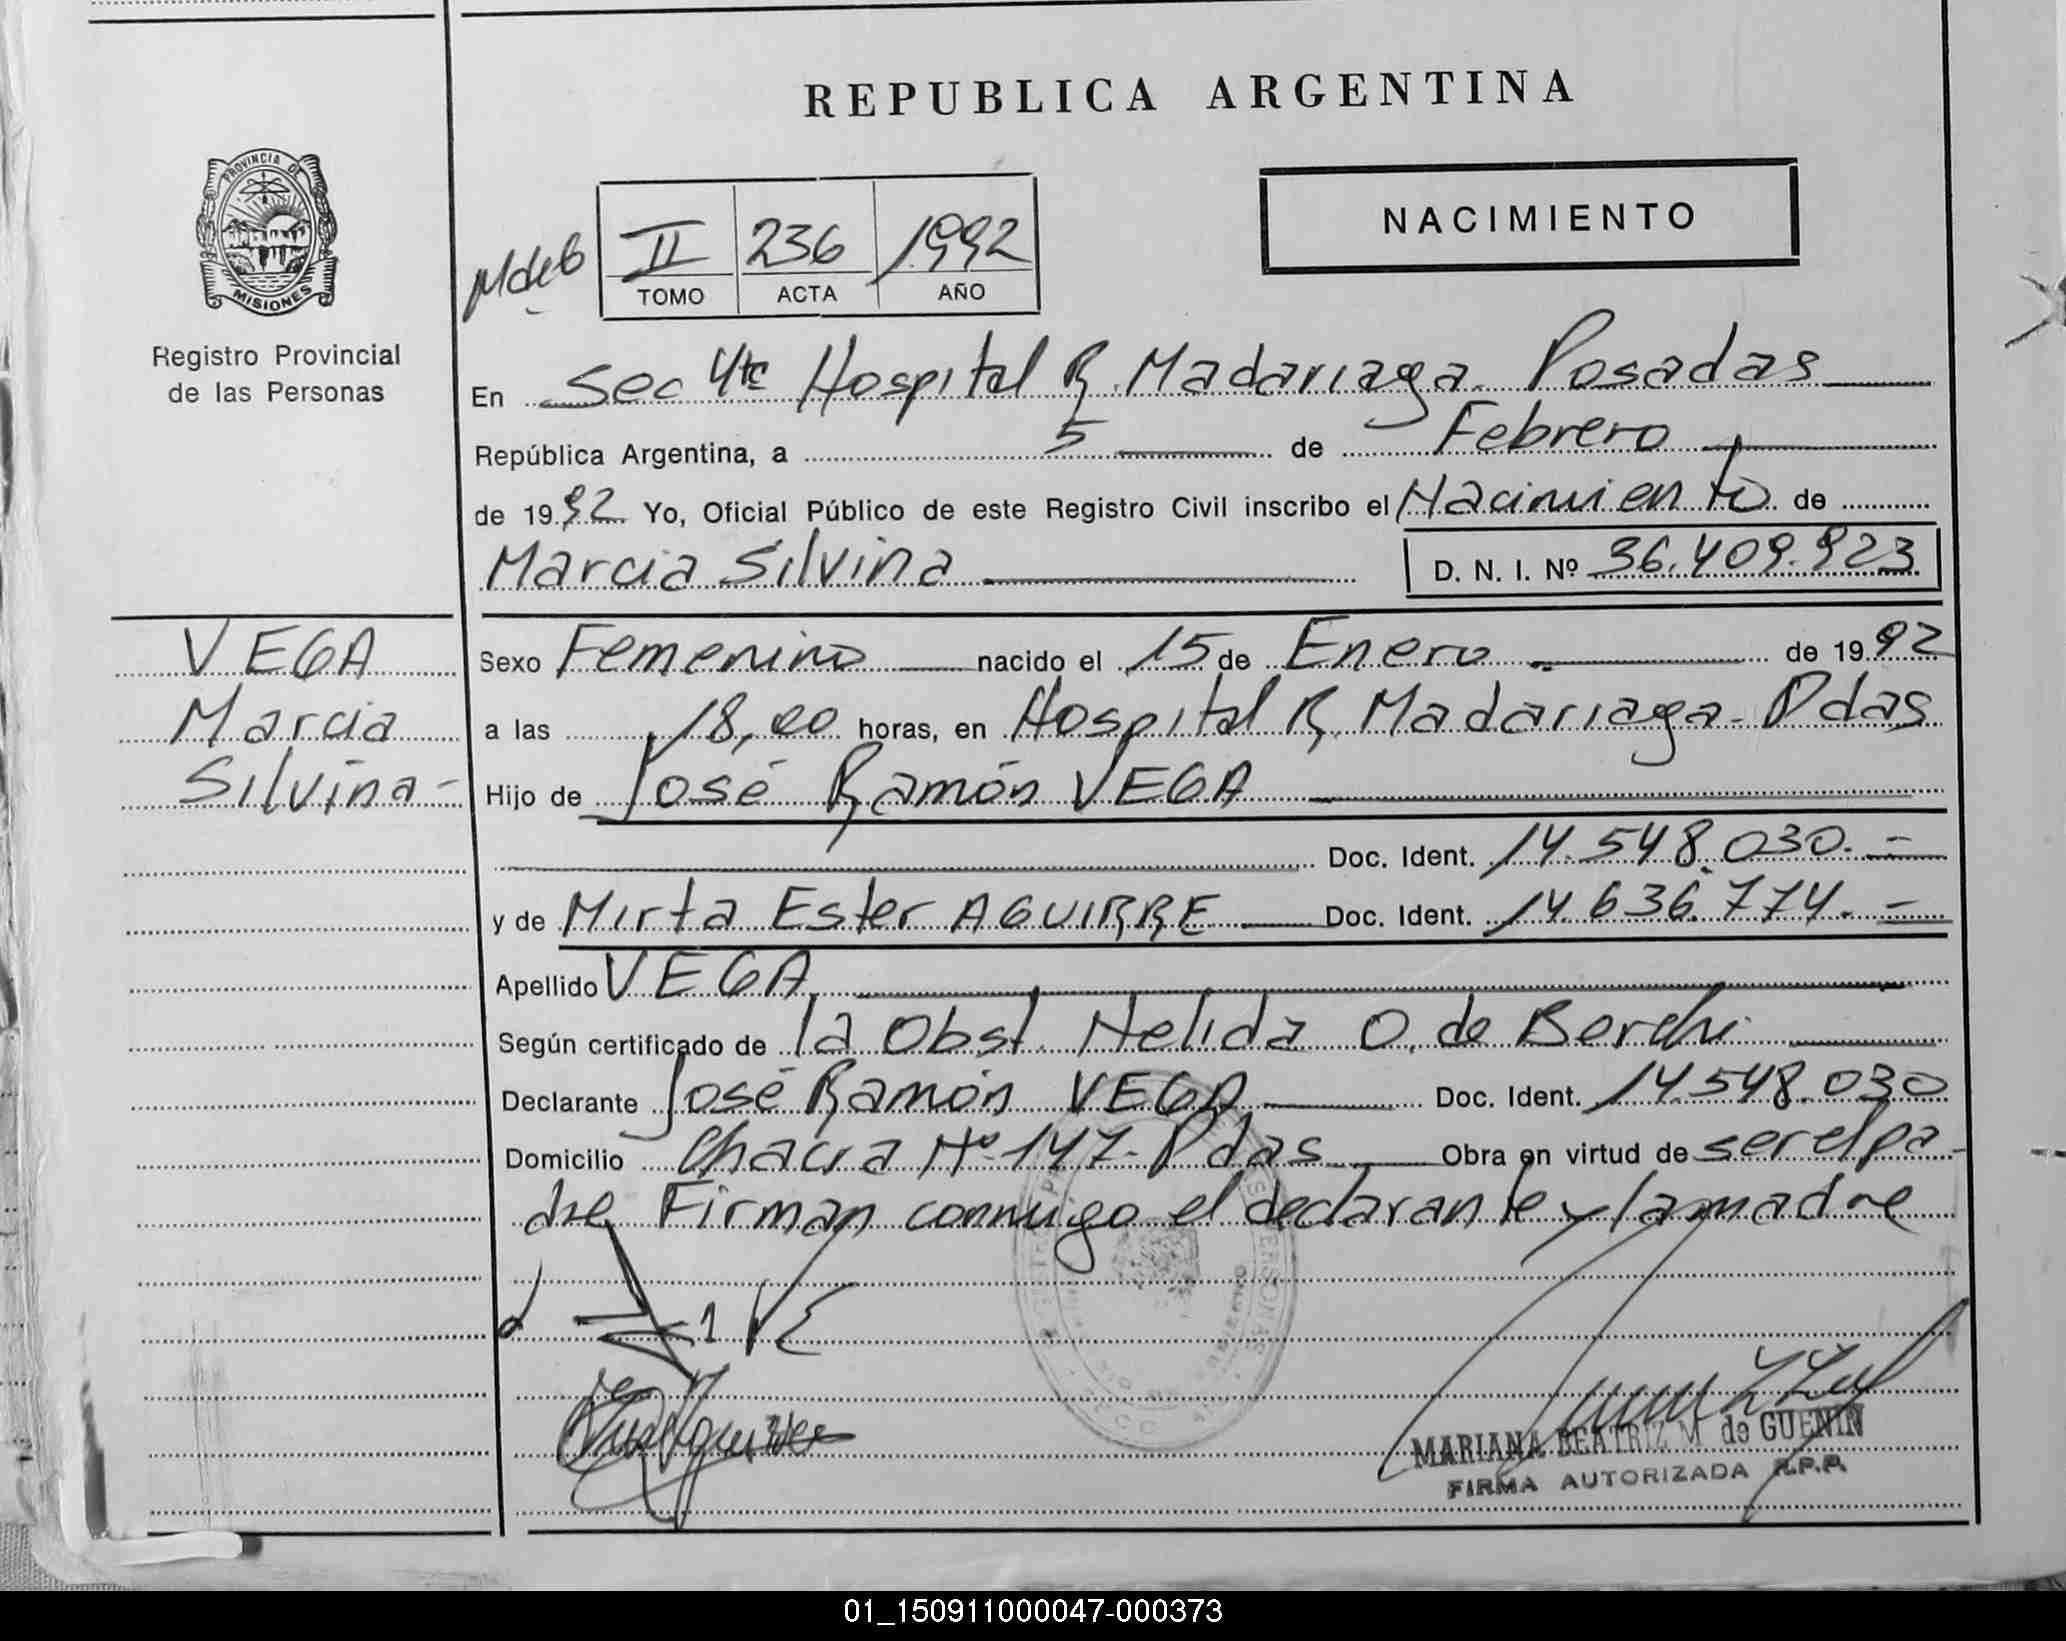 REPUBLICA ARGENTINA
PROVINCIA DE
MISIONES
Registro Provincial
de las Personas
NACIMIENTO
II 236 1992
TOMO ACTA AÑO
En Sec 4ta Hospital R. Madariaga. Posadas
República Argentina, a 5 de Febrero
de 1992 Yo, Oficial Público de este Registro Civil inscribo el Nacimiento de
Marcia Silvina D. N. I. Nº 36.409.923
VEGA
Marcia
Silvina-
Sexo Femenino nacido el 15 de Enero de 1992
a las 18,00 horas, en Hospital R. Madariaga- Pdas
Hijo de José Ramón VEGA
Doc. Ident. 14.548.030.-
y de Mirta Ester AGUIRRE Doc. Ident. 14.636.774.-
Apellido VEGA
Según certificado de la Obst. Nelida O. de
Declarante José Ramón VEGA Doc. Ident. 14.548.030
Domicilio Chacra Nº 147- Pdas Obra en virtud de ser el pa-
dre Firman conmigo el declarante y la madre
MARIANA BEATRIZ M de GUENIN
FIRMA AUTORIZADA R.P.P.
01_150911000047-000373